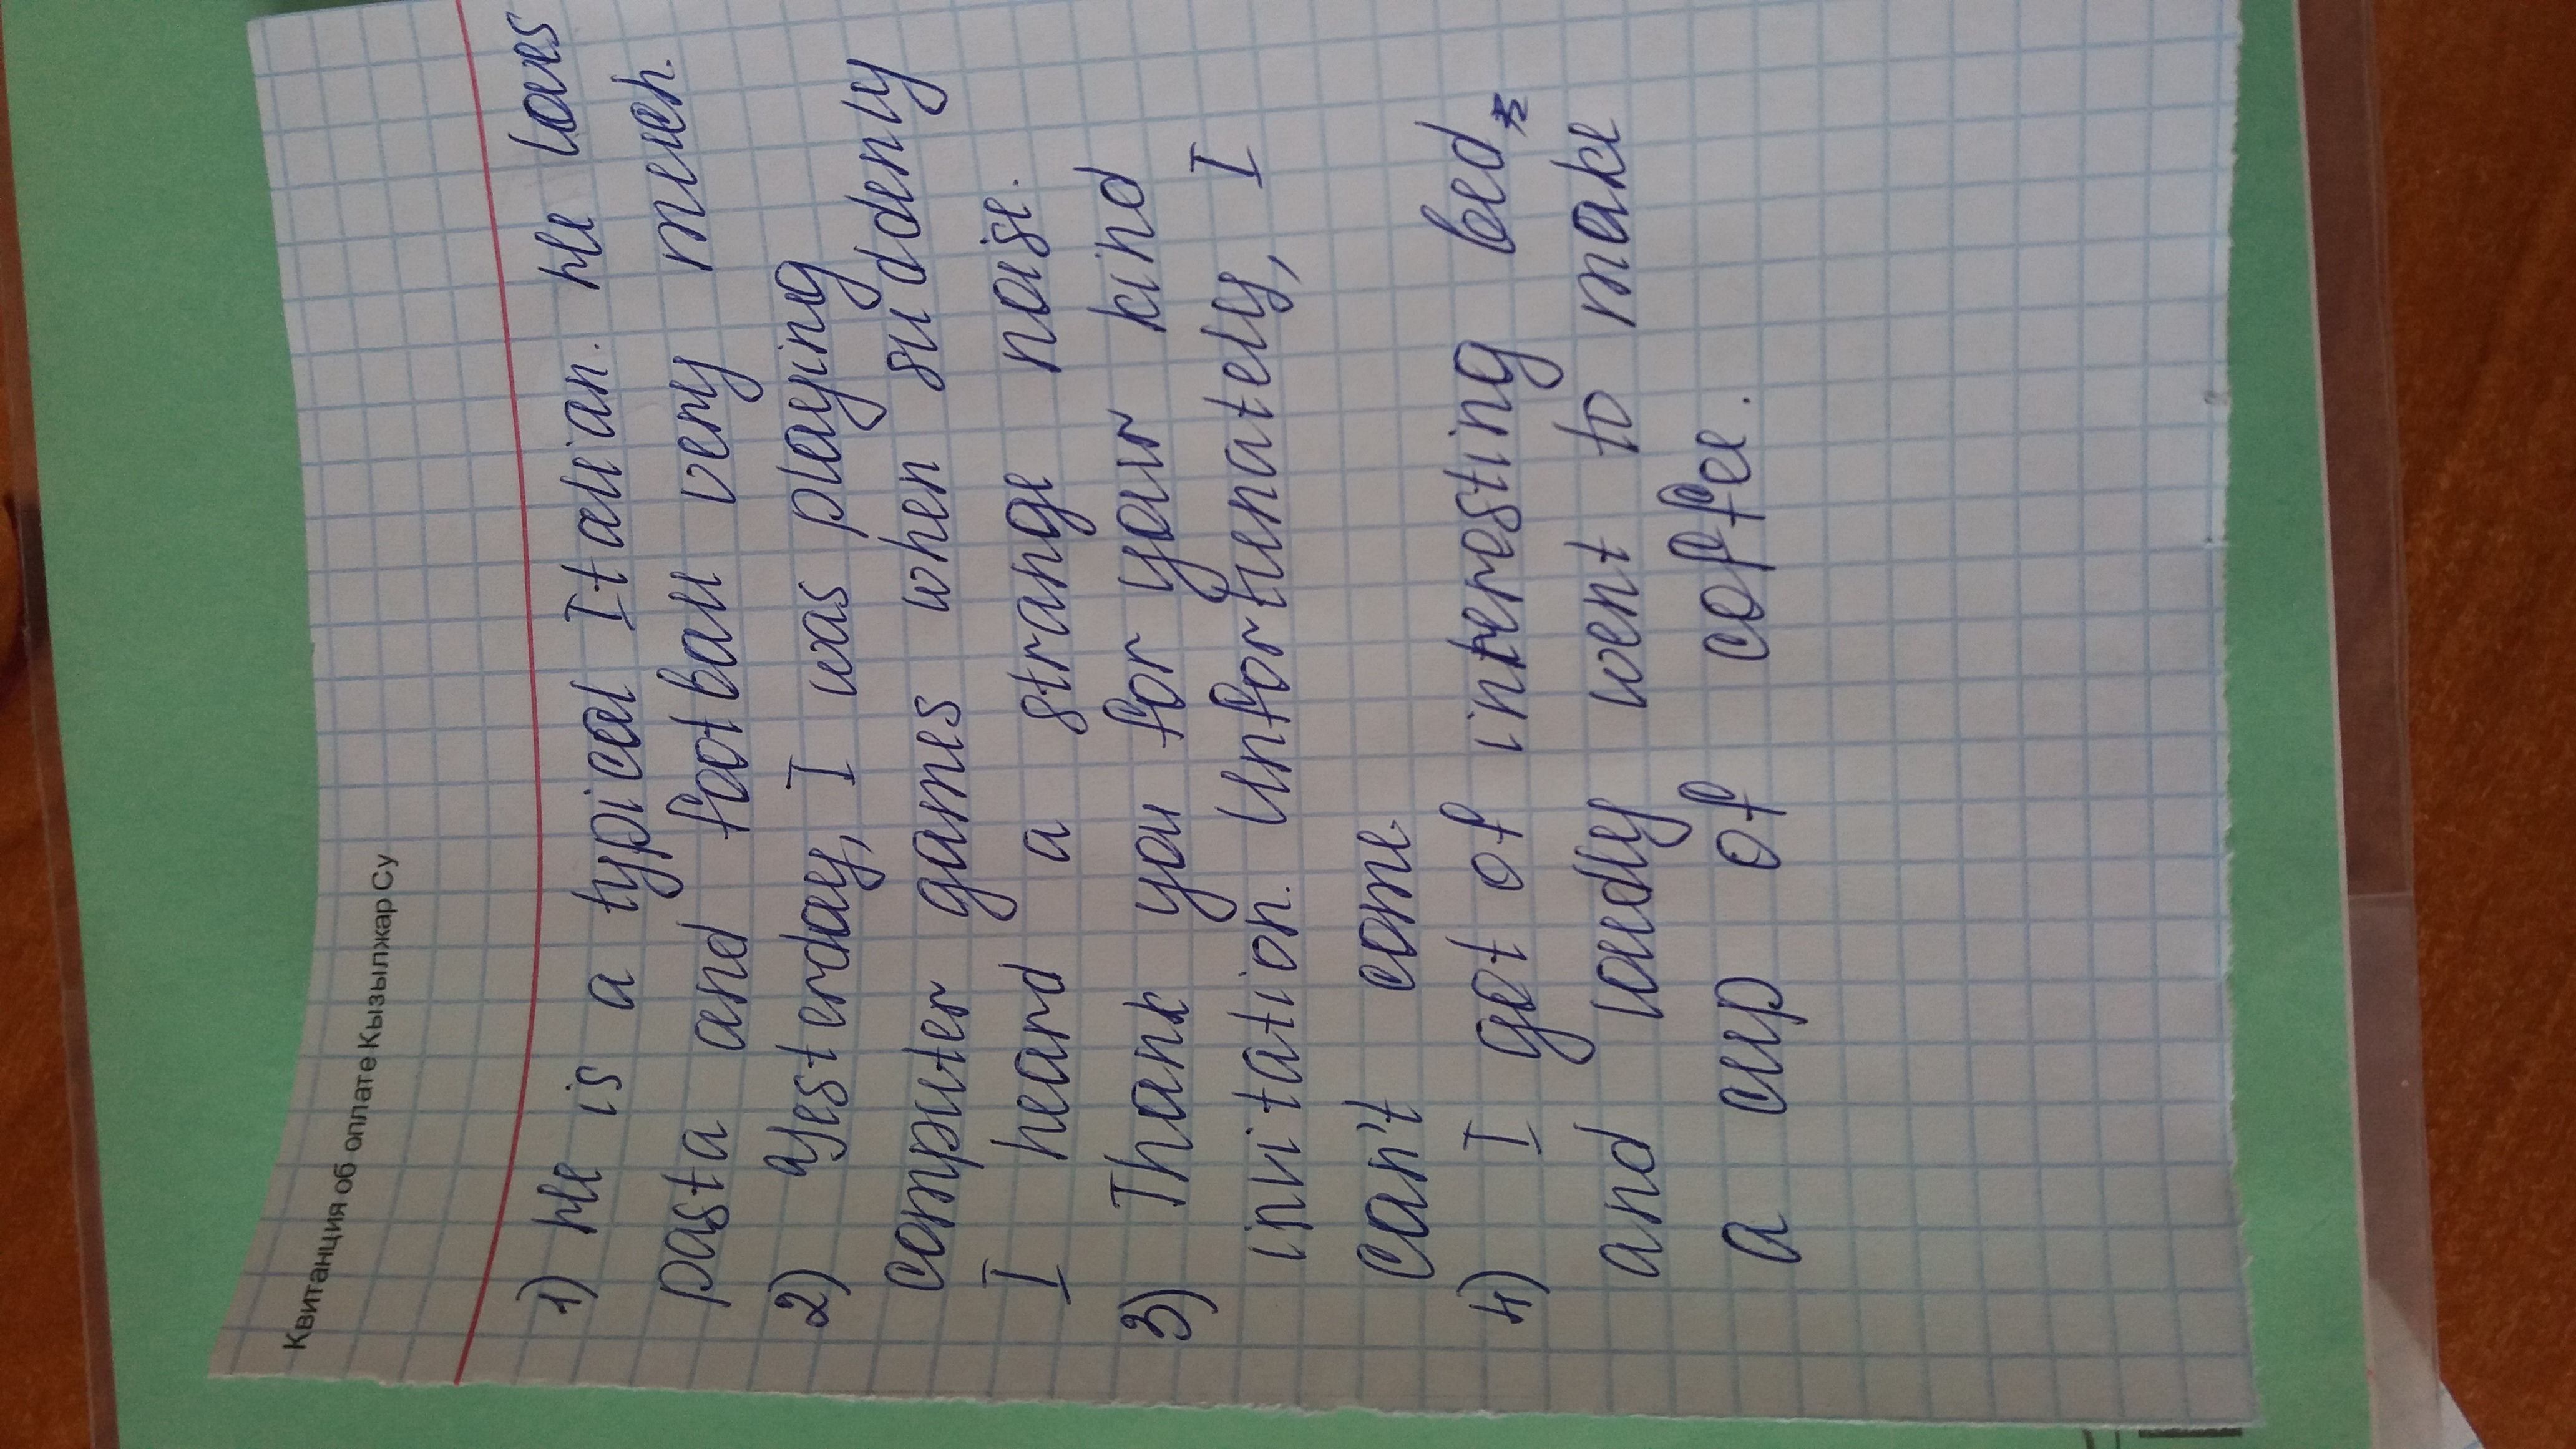 Квитанция об оплате Кызылжар Су
1) He is a typical Italian. He loves
pasta and football very much.
2) Yesterday, I was playing
computer games when suddenly
I heard a strange noise.
3) Thank you for your kind
invitation. Unfortunately, I
can't come.
4) I get of interosting bed,
and loudly went to make
a cup of coffee.